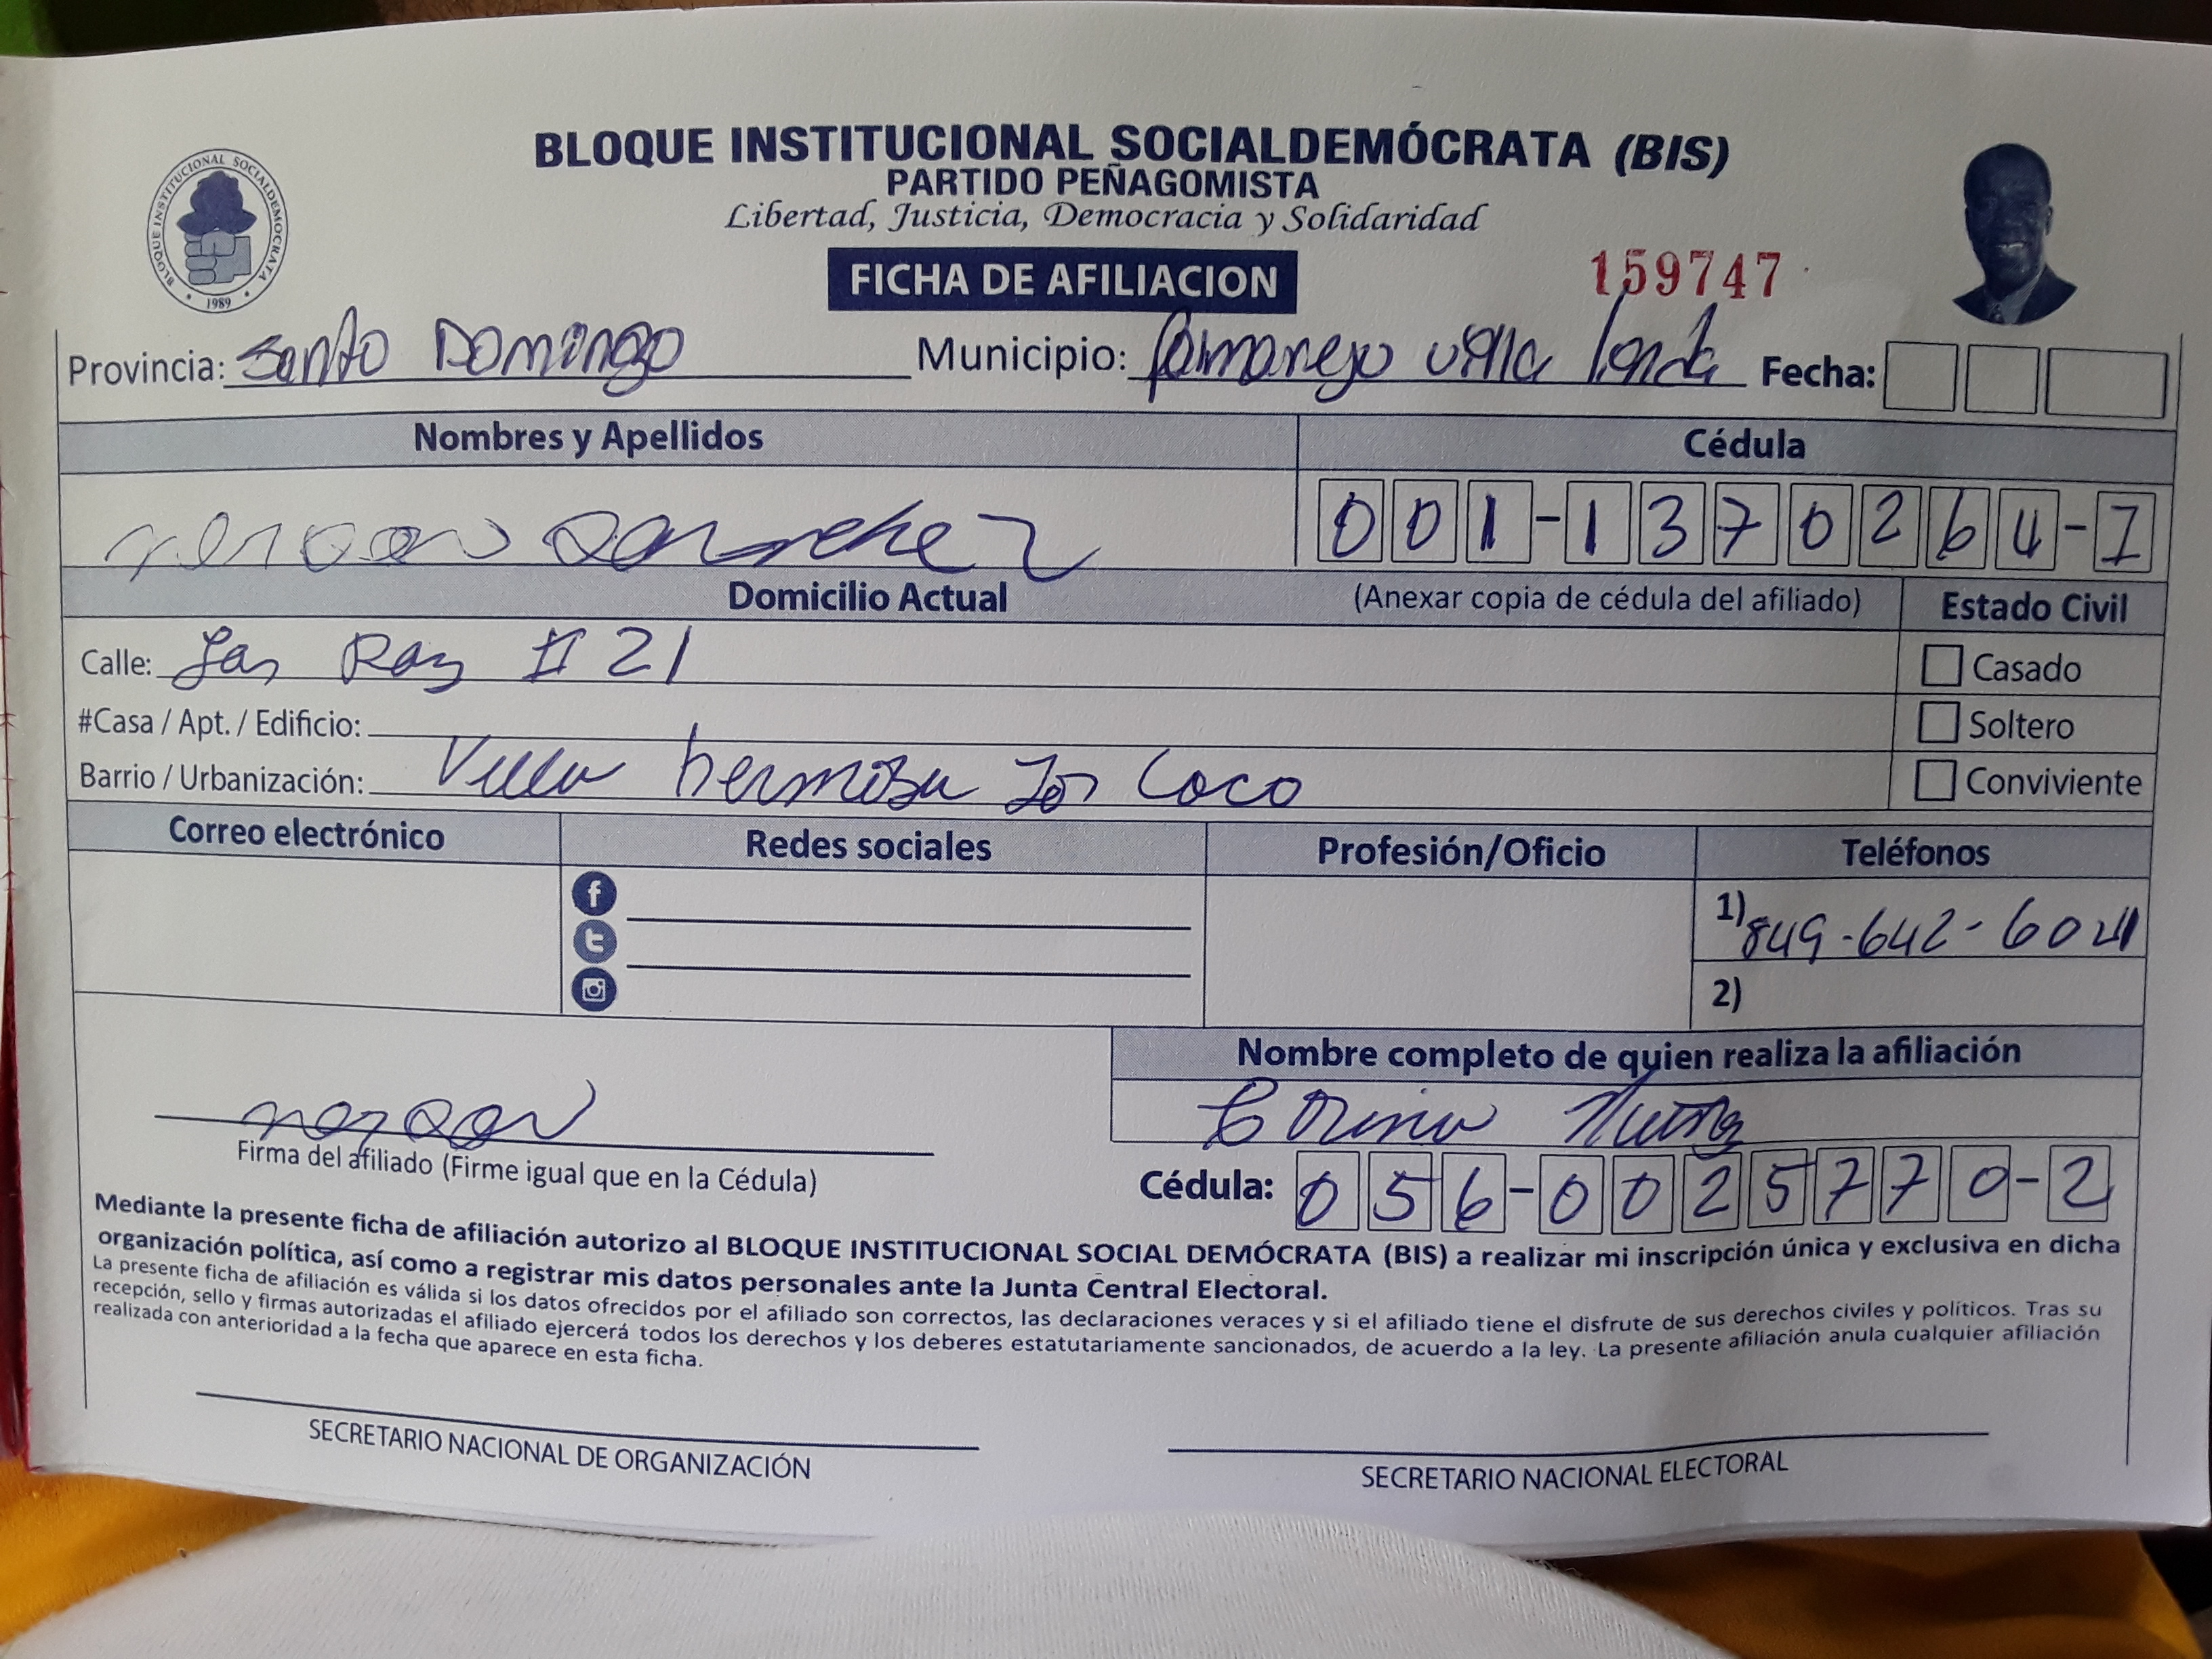 BLOQUE INSTITUCIONAL SOCIALDEMÓCRATA (BIS)
PARTIDO PEÑAGOMISTA
Libertad, Justicia, Democracia y Solidaridad
BLOQUE INSTITUCIONAL SOCIALDEMOCRATA
1989
FICHA DE AFILIACION
159747
Provincia: Santo Domingo Municipio: Villa Fecha:
Nombres y Apellidos Cédula
Sanchez 001-1370264-1
Domicilio Actual (Anexar copia de cédula del afiliado) Estado Civil
Calle: # 21 Casado
#Casa / Apt. / Edificio: Soltero
Barrio / Urbanización: Villa hermosa Los Coco Conviviente
Correo electrónico Redes sociales Profesión/Oficio Teléfonos
1) 849-642-
2)
Nombre completo de quien realiza la afiliación
Firma del afiliado (Firme igual que en la Cédula)
Cédula: 056-0025770-2
Mediante la presente ficha de afiliación autorizo al BLOQUE INSTITUCIONAL SOCIAL DEMÓCRATA (BIS) a realizar mi inscripción única y exclusiva en dicha
organización política, así como a registrar mis datos personales ante la Junta Central Electoral.
La presente ficha de afiliación es válida si los datos ofrecidos por el afiliado son correctos, las declaraciones veraces y si el afiliado tiene el disfrute de sus derechos civiles y políticos. Tras su
recepción, sello y firmas autorizadas el afiliado ejercerá todos los derechos y los deberes estatutariamente sancionados, de acuerdo a la ley. La presente afiliación anula cualquier afiliación
realizada con anterioridad a la fecha que aparece en esta ficha.
SECRETARIO NACIONAL DE ORGANIZACIÓN SECRETARIO NACIONAL ELECTORAL